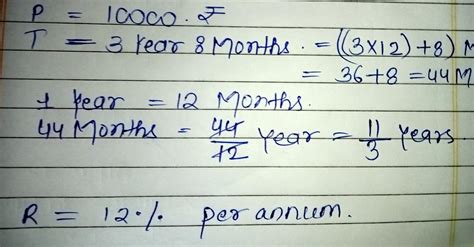 P = 10000.₹
T = 3 Year 8 Months. = ((3×12)+8) M
= 36+8 = 44 M
1 Year = 12 Months.
44 Months = 44/12 Year = 11/3 Years.
R = 12% per annum.